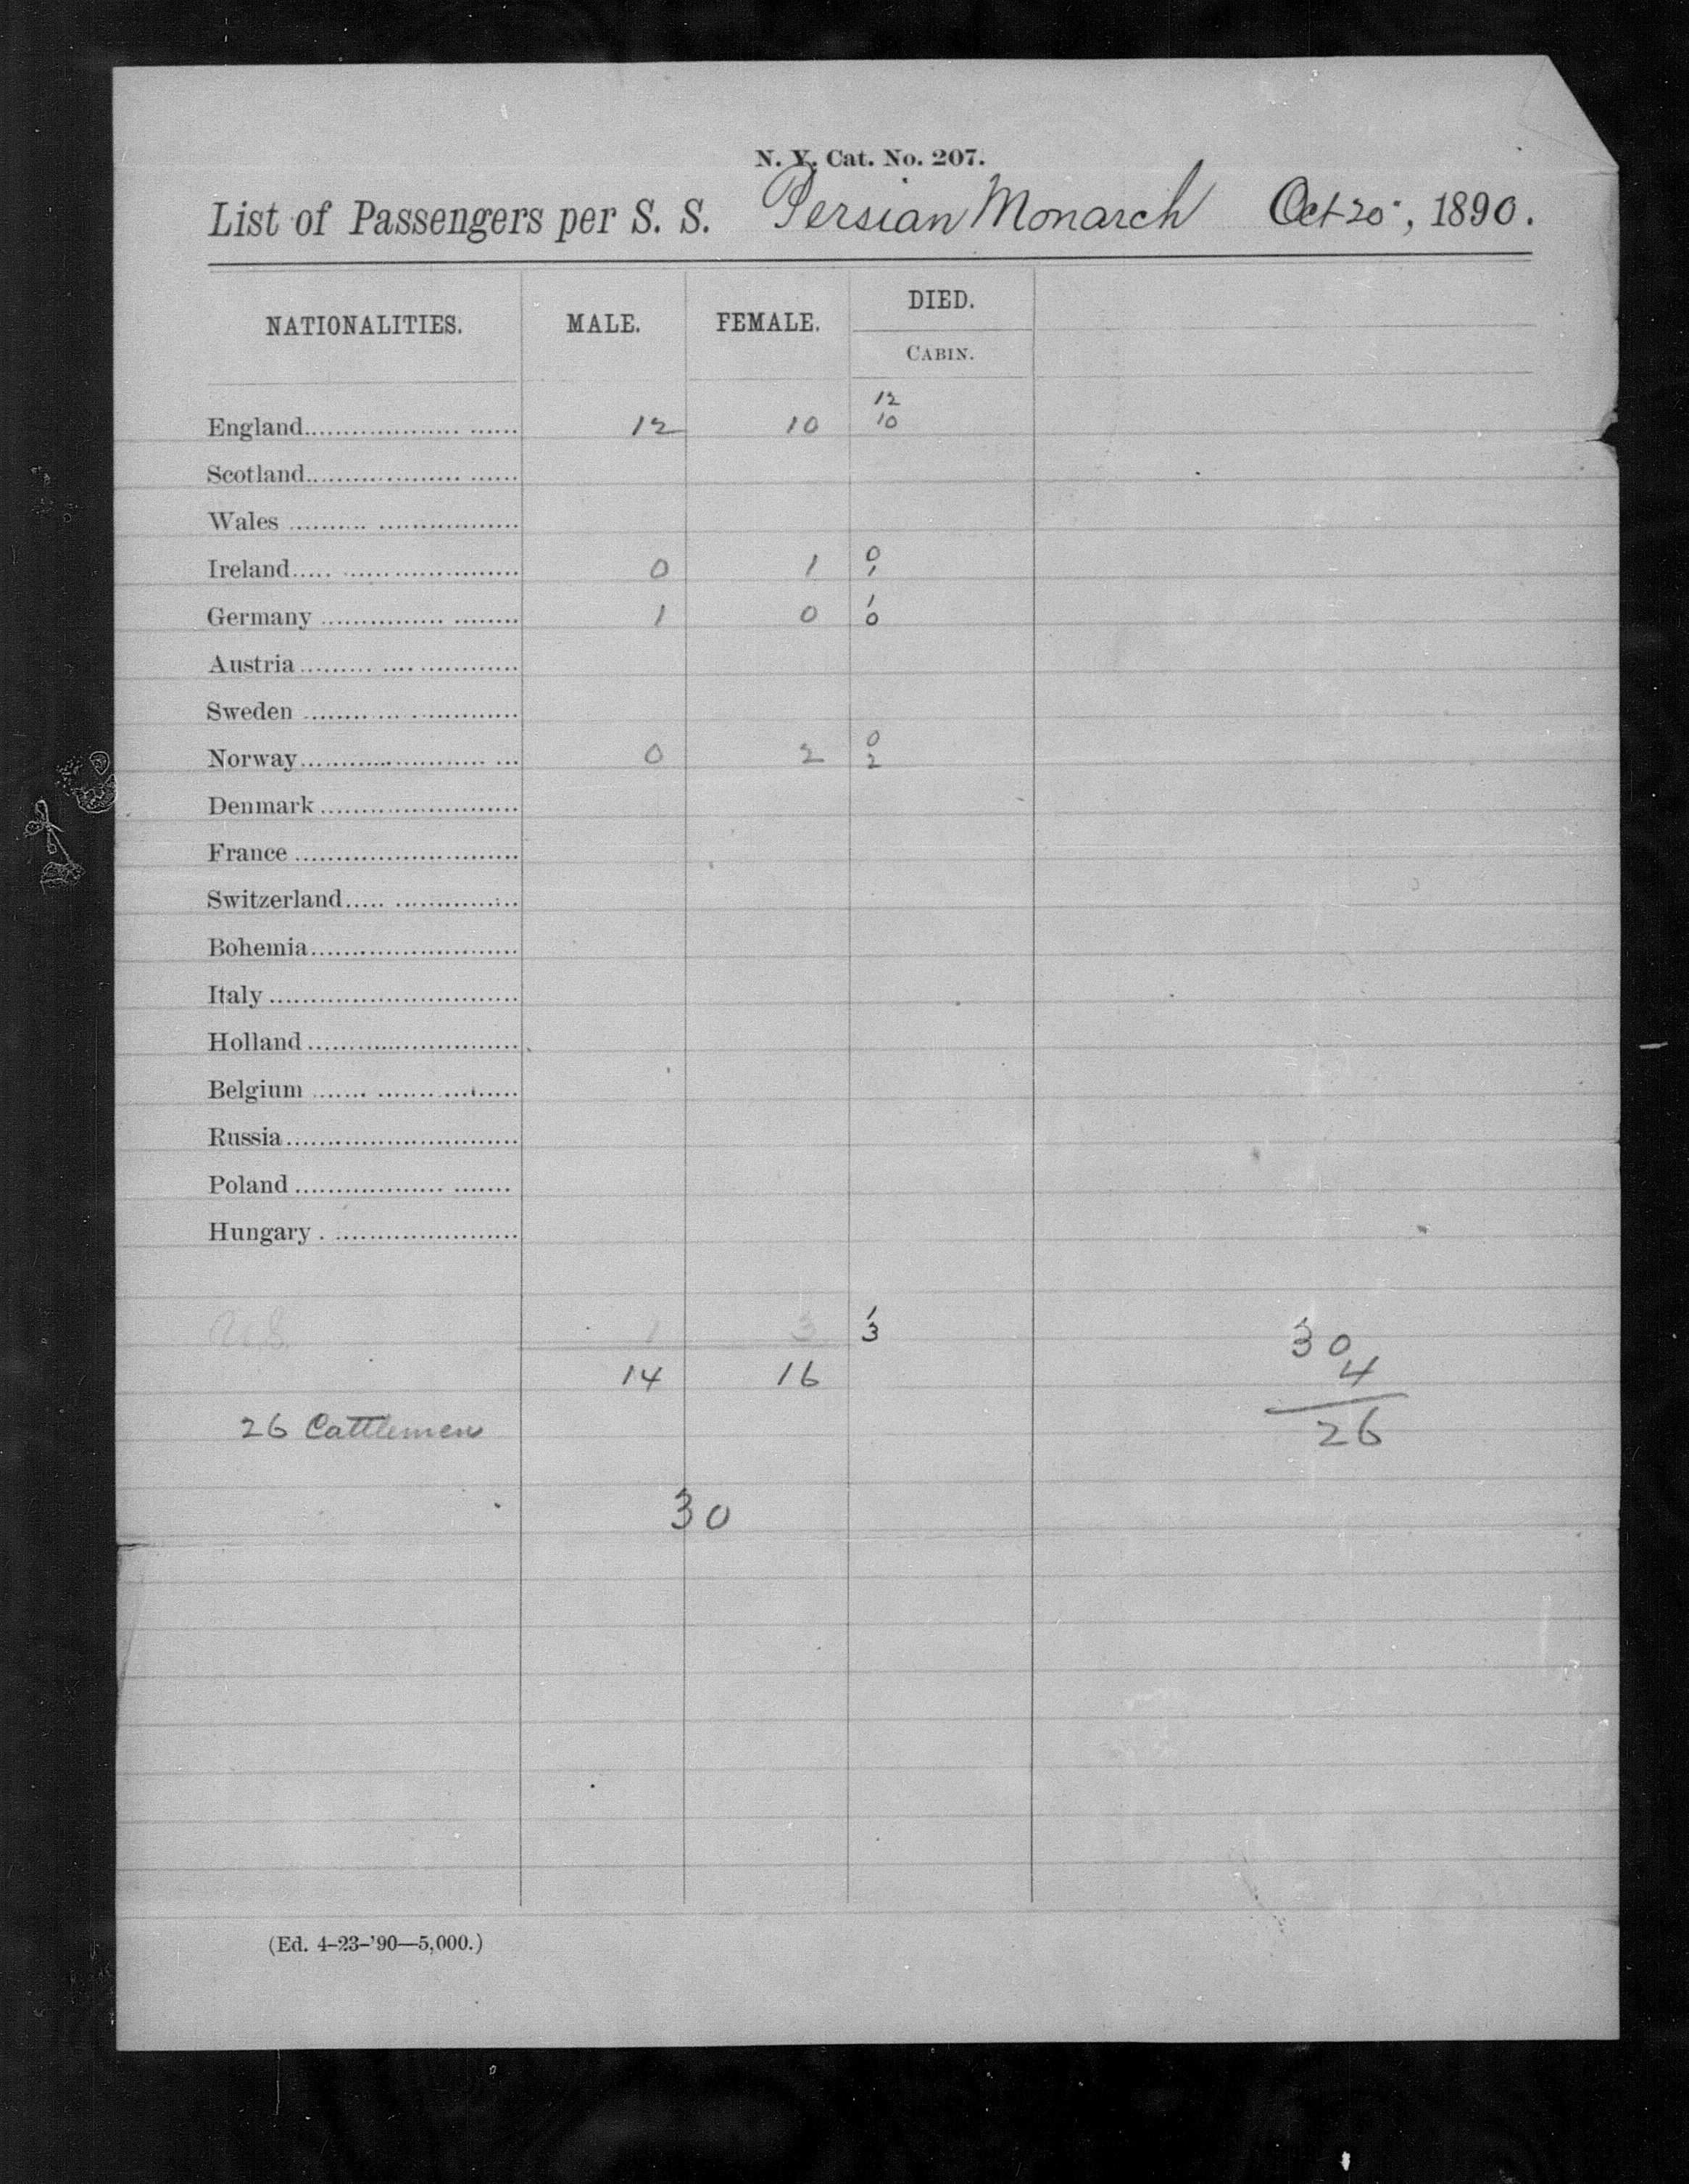 N. Y. Cat. No. 207.
List of Passengers per S. S. Persian Monarch Oct 20, 1890.
NATIONALITIES. MALE. FEMALE. DIED.
CABIN.
12
England........................ 12 10 10
Scotland........................
Wales ........................
0
Ireland........................ 0 1 1
1
Germany ........................ 1 0 0
Austria ........................
Sweden ........................
0
Norway........................ 0 2 2
Denmark ........................
France ........................
Switzerland........................
Bohemia........................
Italy ........................
Holland ........................
Belgium ........................
Russia ........................
Poland ........................
Hungary ........................
1
U.S. 1 3 3
30
14 16 4
26 Cattlemen 26
30
(Ed. 4-23-'90—5,000.)